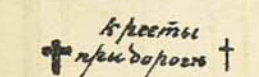 кресты
при дороге